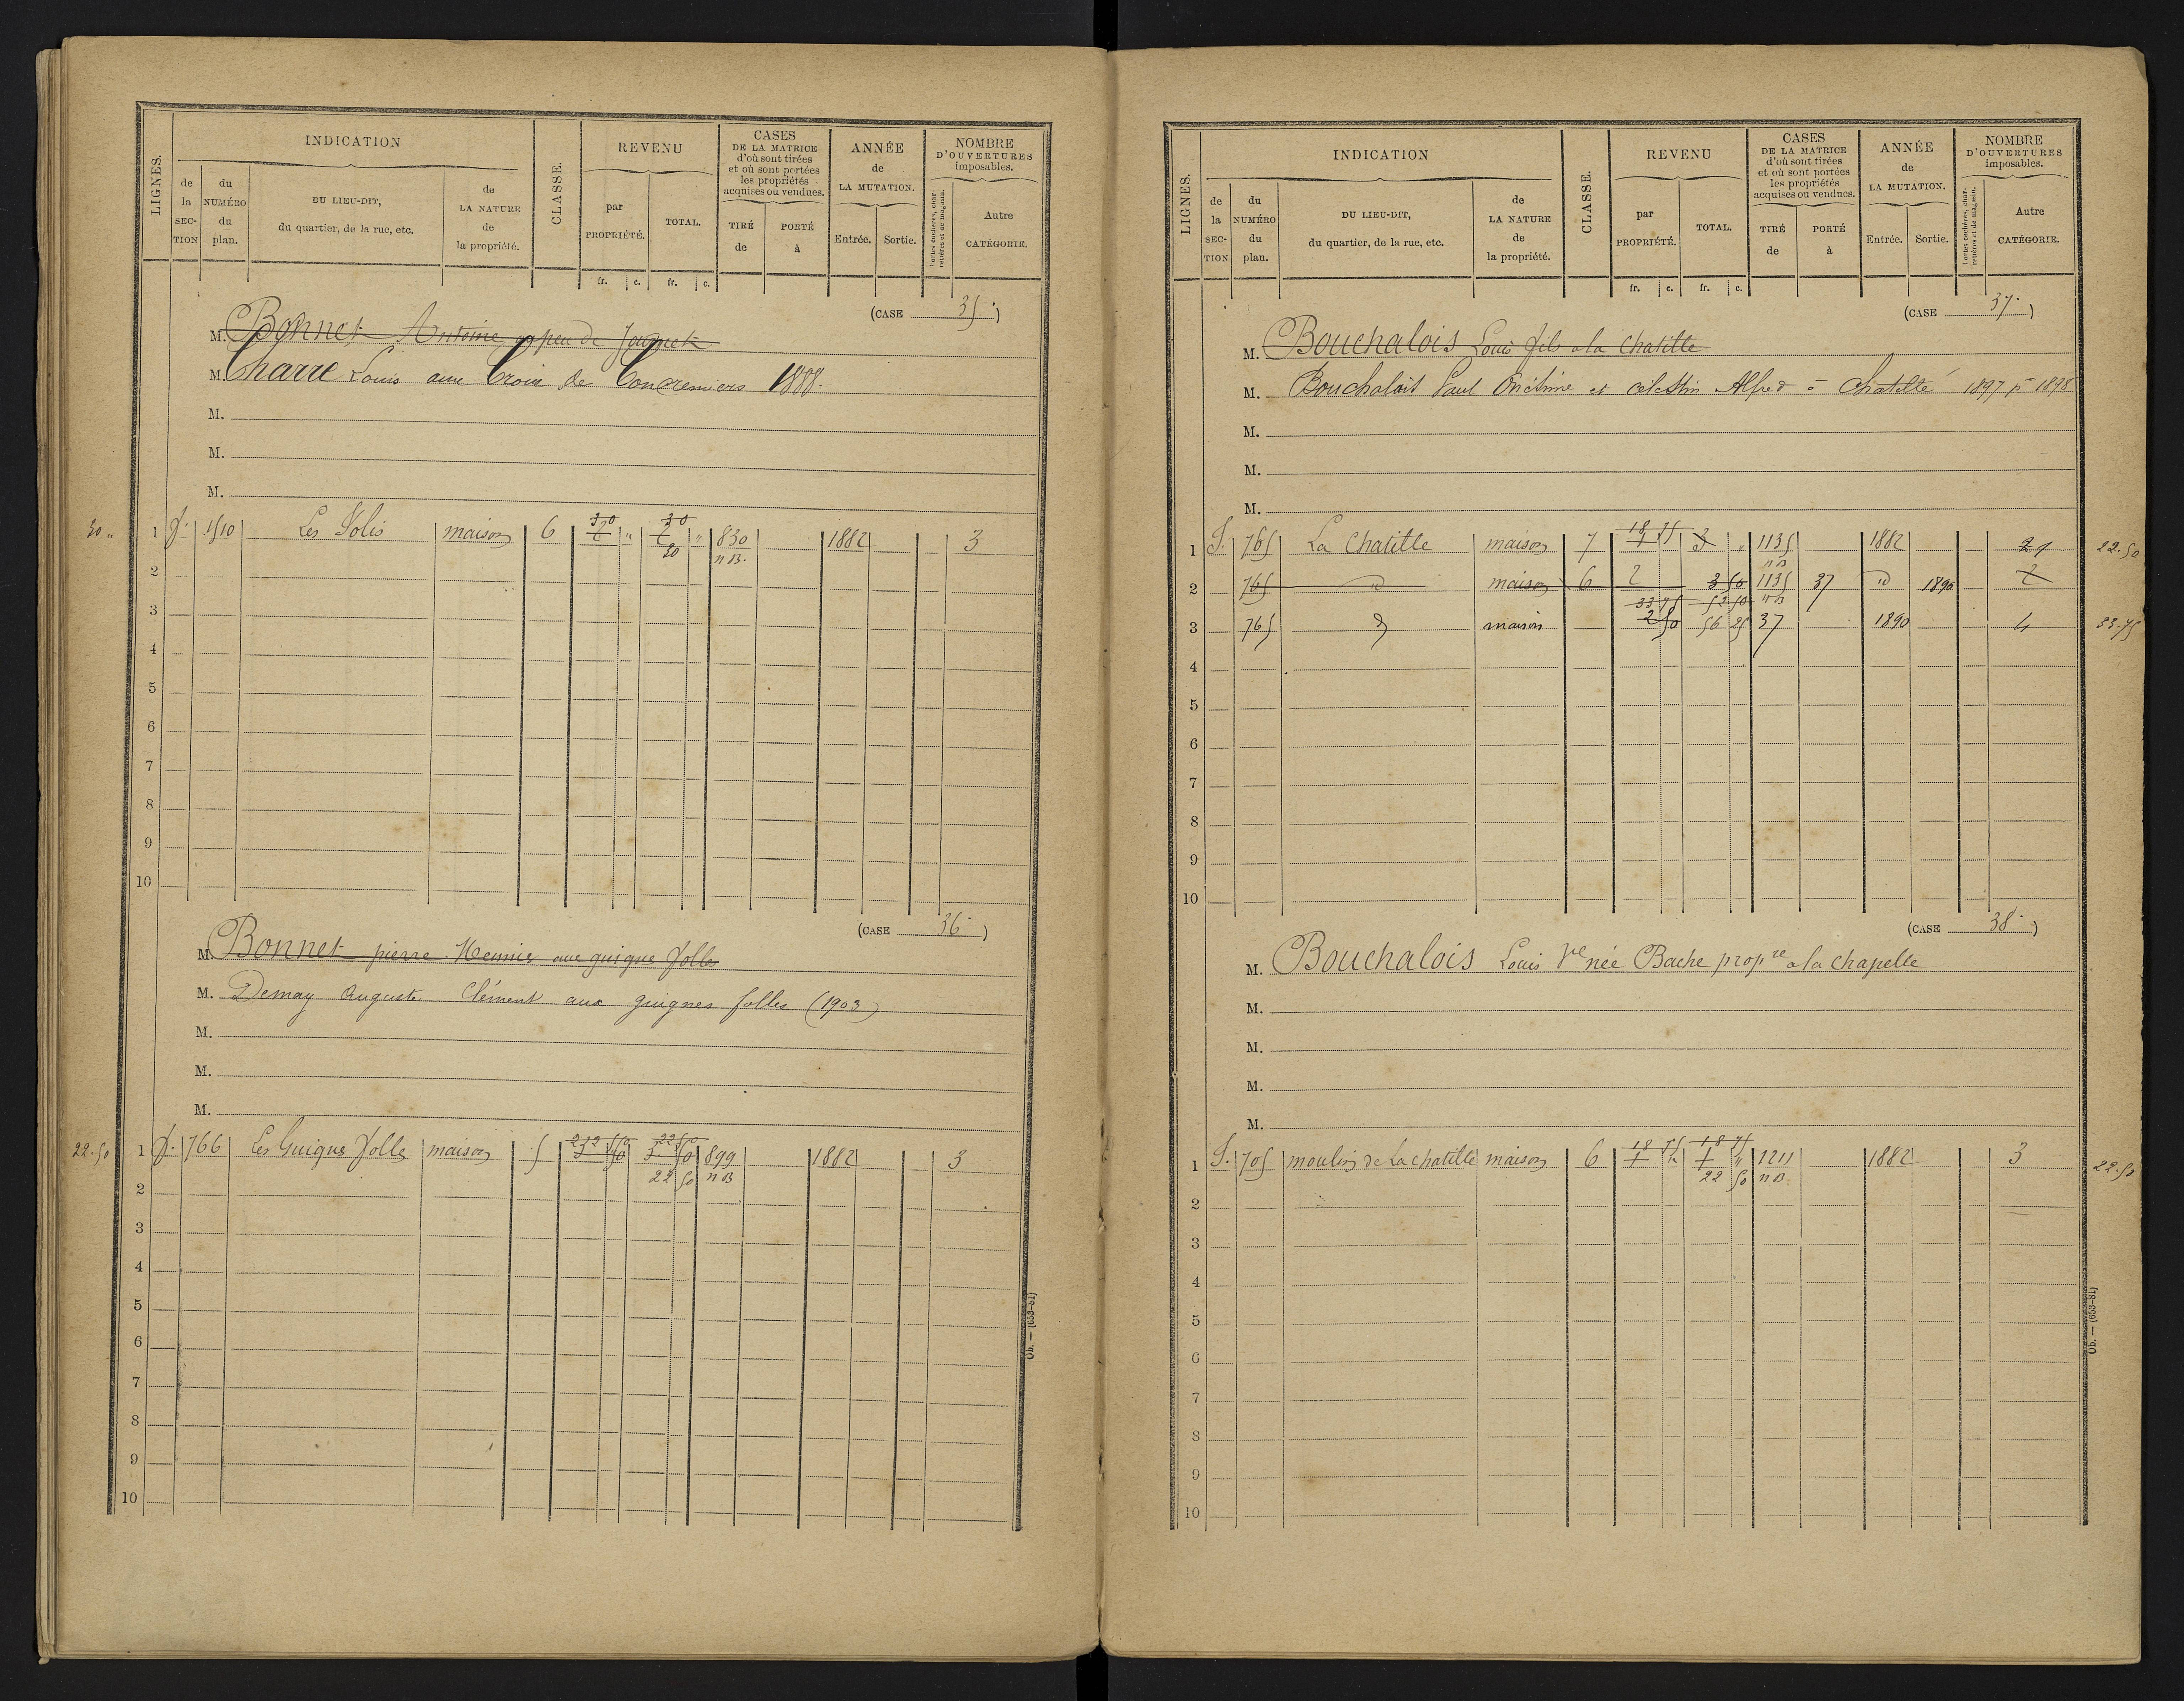 LIGNES.
INDICATION
de la SECTION
du NUMÉRO du plan.
DU LIEU-DIT, du quartier, de la rue, etc.
de LA NATURE de la propriété.
CLASSE.
REVENU
par PROPRIÉTÉ.
TOTAL.
CASES DE LA MATRICE d'où sont tirées et où sont portées les propriétés acquises ou vendues.
TIRÉ de
PORTÉ à
ANNÉE de LA MUTATION.
Entrée.
Sortie.
NOMBRE D'OUVERTURES imposables.
Portes cochères, charretières et de magasin.
Autre CATÉGORIE.
fr. c. fr. c.
(CASE 35.)
M. Bonnet Antoine
M. Charre Louis aux Croix de Concremiers 1888.
M.
M.
M.
30 „ 1 1510 Les Solis maison 6 30 „ 30 „ 830 1882 3
20 n B.
2
3
4
5
6
7
8
9
10
(CASE 36.)
M. Bonnet pierre aux guignes folles
M. Demay Auguste Clément aux guignes folles (1903)
M.
M.
M.
22.50 1 766 Les Guignes folles maison 5 22 50 899 1882 3
22 50 n B
2
3
4
5
6
7
8
9
10
Ob. — (653-81)
LIGNES.
INDICATION
de la SECTION
du NUMÉRO du plan.
DU LIEU-DIT, du quartier, de la rue, etc.
de LA NATURE de la propriété.
CLASSE.
REVENU
par PROPRIÉTÉ.
TOTAL.
CASES DE LA MATRICE d'où sont tirées et où sont portées les propriétés acquises ou vendues.
TIRÉ de
PORTÉ à
ANNÉE de LA MUTATION.
Entrée.
Sortie.
NOMBRE D'OUVERTURES imposables.
Portes cochères, charretières et de magasin.
Autre CATÉGORIE.
fr. c. fr. c.
(CASE 37.)
M. Bouchalois Louis fils a la Chatille
M. Bouchalois Paul Onésime et Célestin Alfred à Chatille 1897 pr 1898
M.
M.
M.
1 765 La Chatille maison 7 18 75 3 „ 1135 1882 22.50
n B
2 765 d maison 6 2 3 50 1135 37 d 1890 2
33 75 52 50 n B
3 765 d maison 2 50 56 25 37 1890 4 33.75
4
5
6
7
8
9
10
(CASE 38.)
M. Bouchalois Louis Ve née Bache propre a la chapelle
M.
M.
M.
M.
1 705 moulin de la chatille maison 6 18 75 18 75 1211 1882 3 22.50
22 50 n B.
2
3
4
5
6
7
8
9
10
Ob. — (653-81)